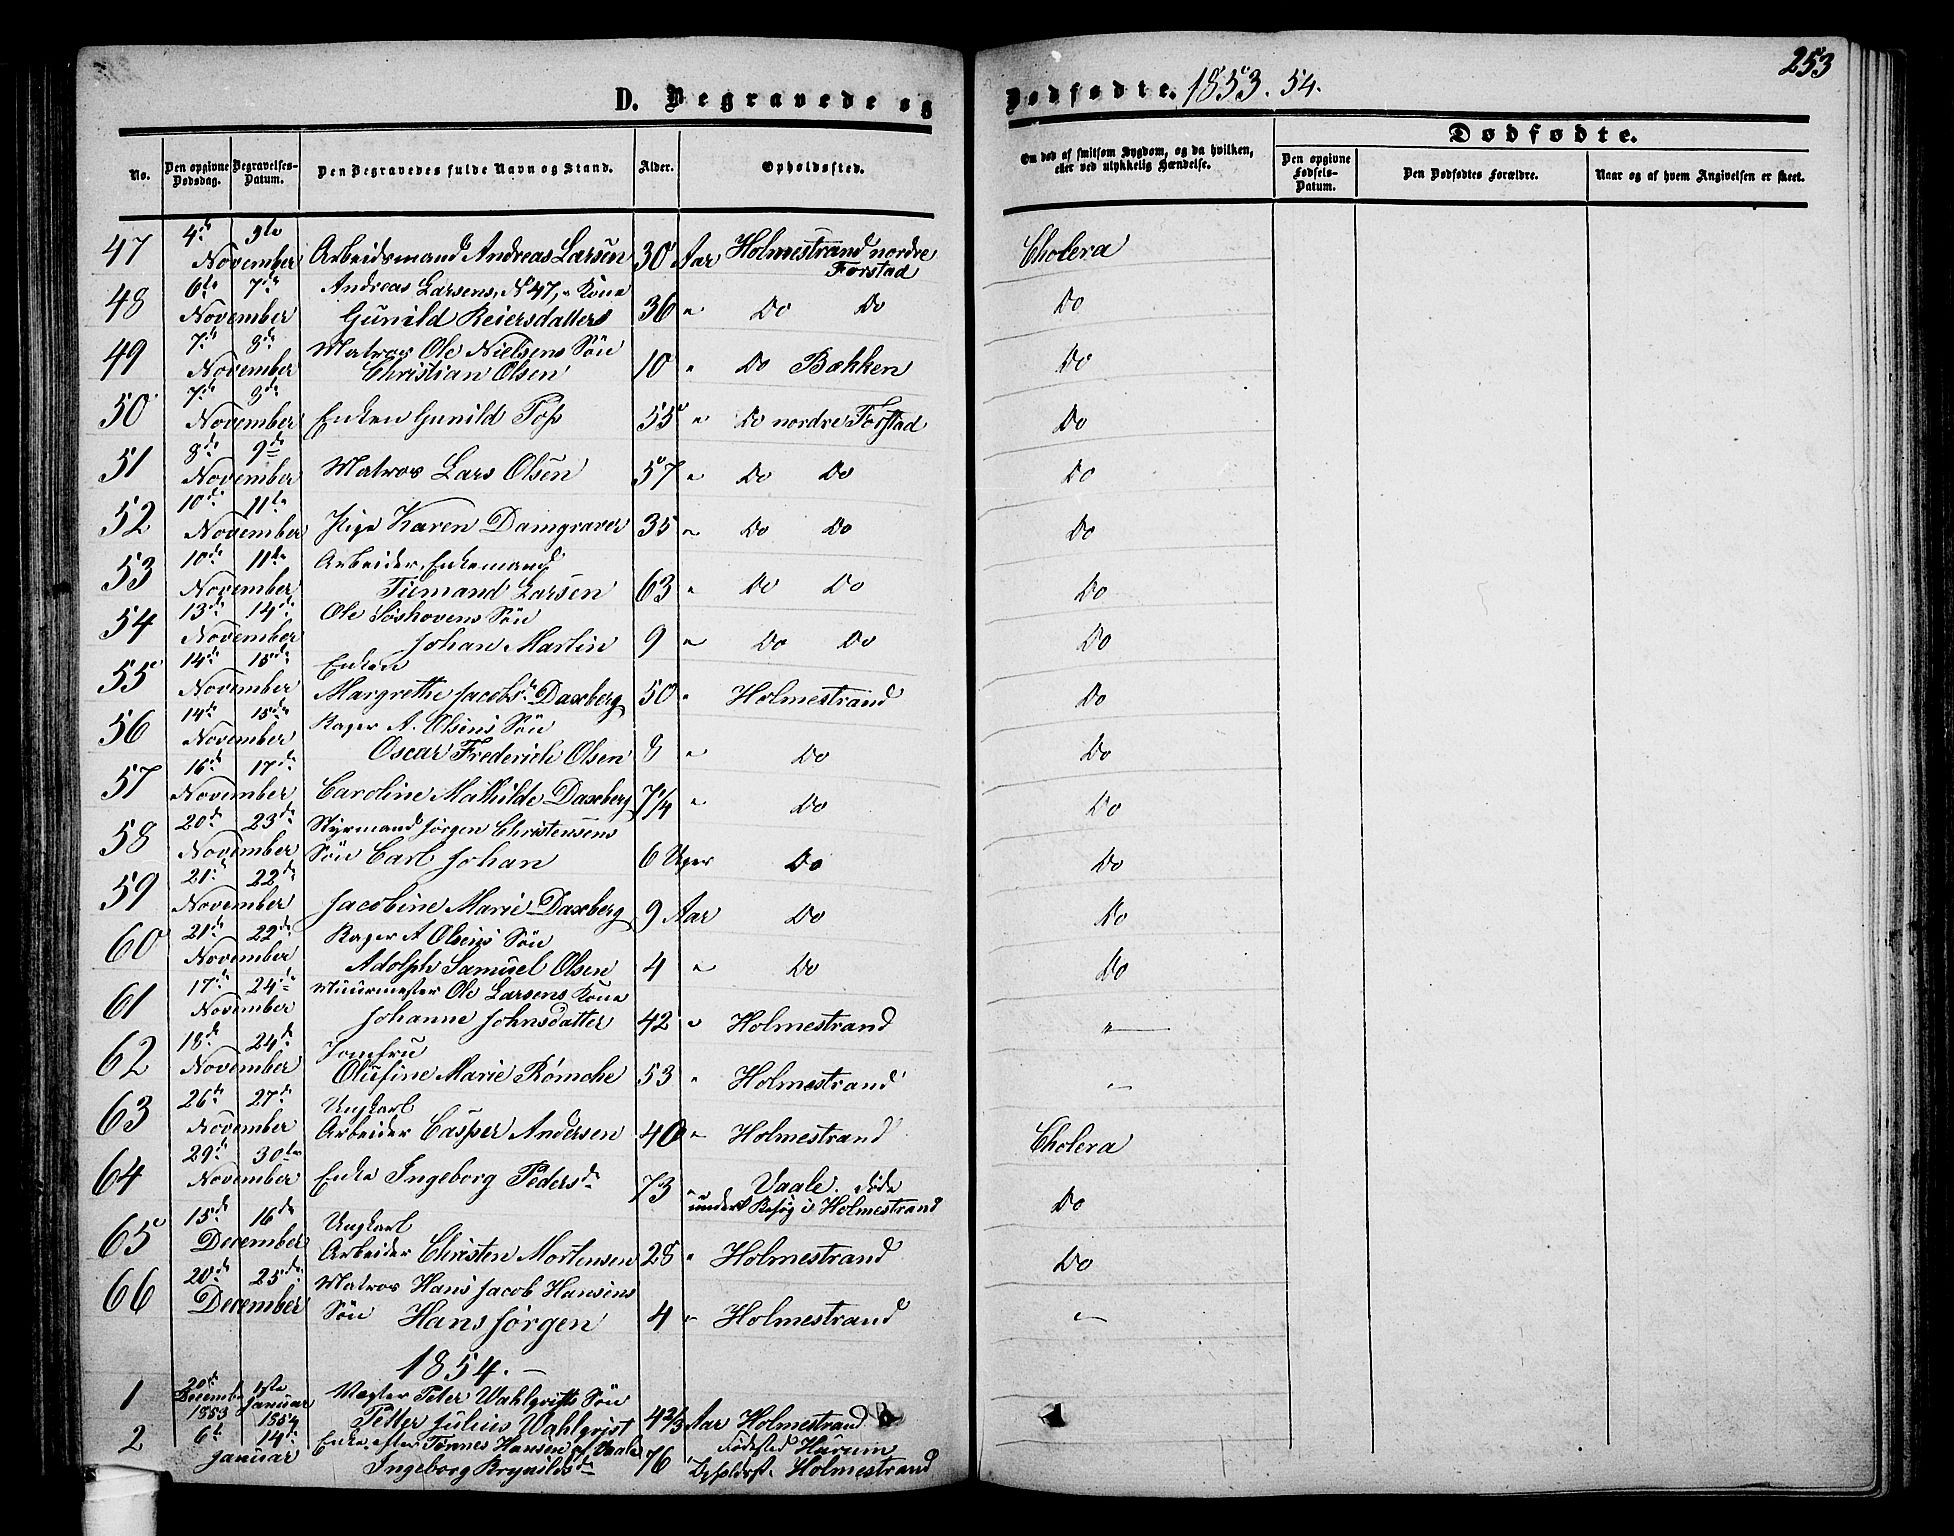 253
D. Begravede og Dødfødte. 1853. 54.
Dødfødte.
No. Den opgivne Dødsdag. Begravelses-Datum. Den Begravedes fulde Navn og Stand. Alder. Opholdssted. Om død af smitsom Sygdom, og da hvilken, eller ved ulykkelig Hændelse. Den opgivne Fødsels-Datum. Den Dødfødtes Forældre. Naar og af hvem Angivelsen er skeet.
4de 5te
47 November Arbeidsmand Andreas Larsen 30 Aar Holmestrand nordre Cholera
Forstad
6te 7de Andreas Larsens, No 47, Kone
48 November Gunild Reiersdatter 36 " Do Do Do
7de 8de Matros Ole Nielsens Søn
49 November Christian Olsen 10 " Do Bækken Do
7de 8de
50 November Enken Gunild Foss 55 " Do nordre Forstad Do
8de 9de
51 November Matros Lars Olsen 57 " Do Do Do
10de 11te
52 November Pige Karen Damgraver 35 " Do Do Do
10de 11te Arbeider, Enkemand
53 November Tiemand Larsen 63 " Do Do Do
13de 14de Ole Søshovens Søn
54 November Johan Martin 9 " Do Do Do
14de 15de Enken
55 November Margrethe Jacobsd. Daxberg 50 " Holmestrand Do
14de 15de Rager A. Olsens Søn
56 November Oscar Frederich Olsen 8 " Do Do
16de 17de
57 November Caroline Mathilde Daxberg 7/4 " Do Do
20de 23de Styrmand Jørgen Christensens
58 November Søn Carl Johan 6 Uger Do Do
21de 22de
59 November Jacobine Marie Daxberg 9 Aar Do Do
21de 22de Rager A Olsens Søn
60 November Adolph Samuel Olsen 4 " Do Do
17de 24de Muurmester Ole Larsens Kone
61 November Johanne Johnsdatter 42 " Holmestrand "
18de 24de Jomfru
62 November Olufine Marie Rømche 53 " Holmestrand "
26de 27de Ungkarl
63 November Arbeider Casper Andersen 40 " Holmestrand Cholera
29de 30te
64 November Enke Ingeborg Pedersd. 73 " Vaale. døde Do
under et Besøg i Holmestrand
15de 16de Ungkarl
65 December Arbeider Christen Mortensen 28 " Holmestrand Do
20de 25de Matros Hans Jacob Hansens
66 December Søn Hans Jørgen 4 " Holmestrand "
1854.
20de 1ste Vægter Peter Wahlqvists Søn
1 December 1853 Januar 1854 Petter Julius Wahlqvist 4 2/3 Aar Holmestrand
6te 14de Enke efter Tønnes Hansen af Vaale Fødested Hurum
2 Januar Ingeborg Brynildsd. 76 Opholdsst. Holmestrand